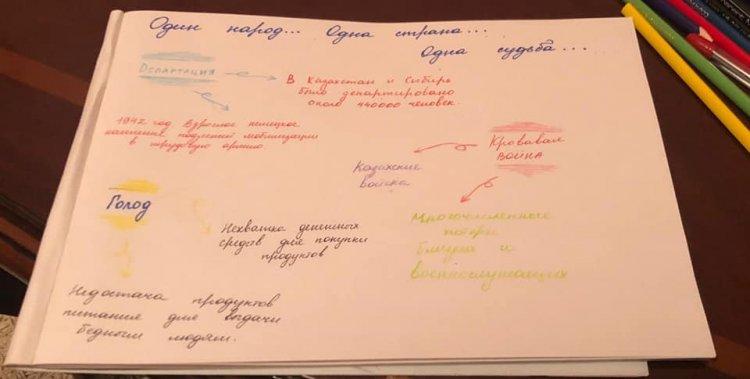 Один народ... Одна страна...
Одна судьба...
Депортация
В Казахстан и Сибирь
было депортировано
около 440000 человек.
1942 год Взрослое немецкое
население подлежит мобилизации
в трудовую армию.
Кровавая
война
Казахские
войска
Голод
Многочисленные
потери
близких и
военнослужащих
Нехватка денежных
средств для покупки
продуктов
Недостача продуктов
питания для выдачи
бедным людям.